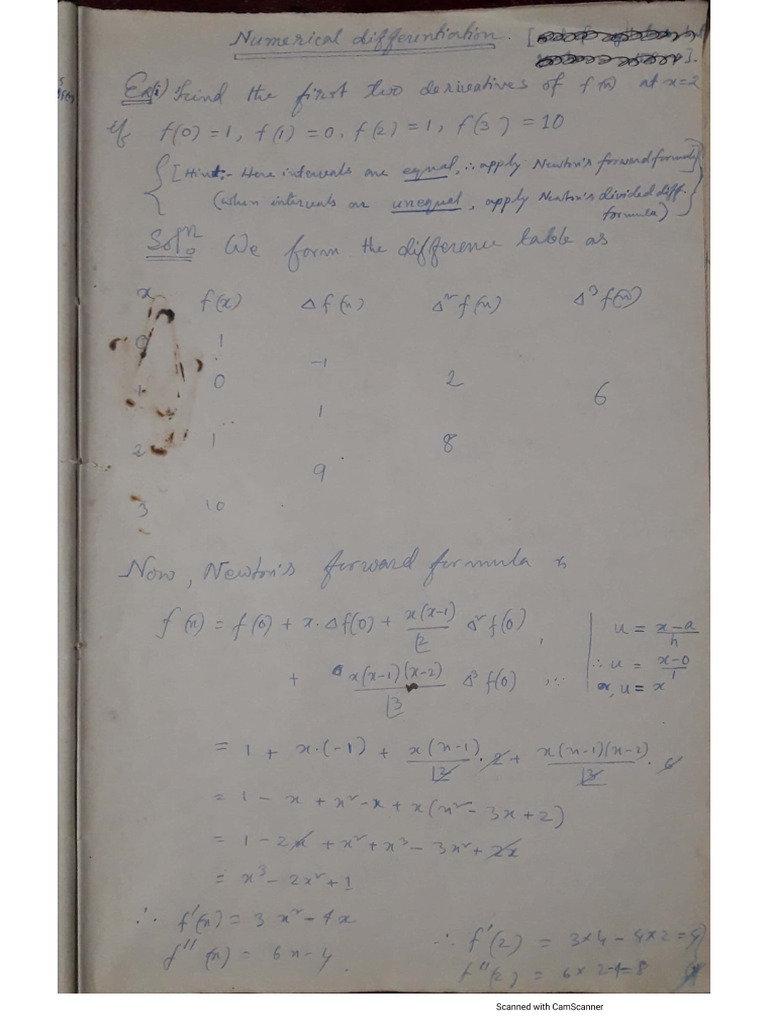 Numerical differentiation. [
].
Ex(i) Find the first two derivatives of f(x) at x=2
if f(0)=1, f(1)=0, f(2)=1, f(3)=10
{[Hint:- Here intervals are equal, ∴ apply Newton's forward formula]
(when intervals are unequal, apply Newton's divided diff. formula)}
Solⁿ. We form the difference table as
x f(x) Δf(x) Δ²f(x) Δ³f(x)
0 1
-1
1 0 2
1 6
2 1 8
9
3 10
Now, Newton's forward formula is
f(x) = f(0) + x.Δf(0) + x(x-1)/⌊2 Δ²f(0)
+ x(x-1)(x-2)/⌊3 Δ³f(0)
u = (x-a)/h
∴ u = (x-0)/1
or, u = x
= 1 + x.(-1) + x(x-1)/⌊2 . 2 + x(x-1)(x-2)/⌊3 . 6
= 1 - x + x² - x + x(x² - 3x + 2)
= 1 - 2x + x² + x³ - 3x² + 2x
= x³ - 2x² + 1
∴ f'(x) = 3x² - 4x
f''(x) = 6x - 4
∴ f'(2) = 3×4 - 4×2 = 4
f''(2) = 6×2-4 = 8
Scanned with CamScanner